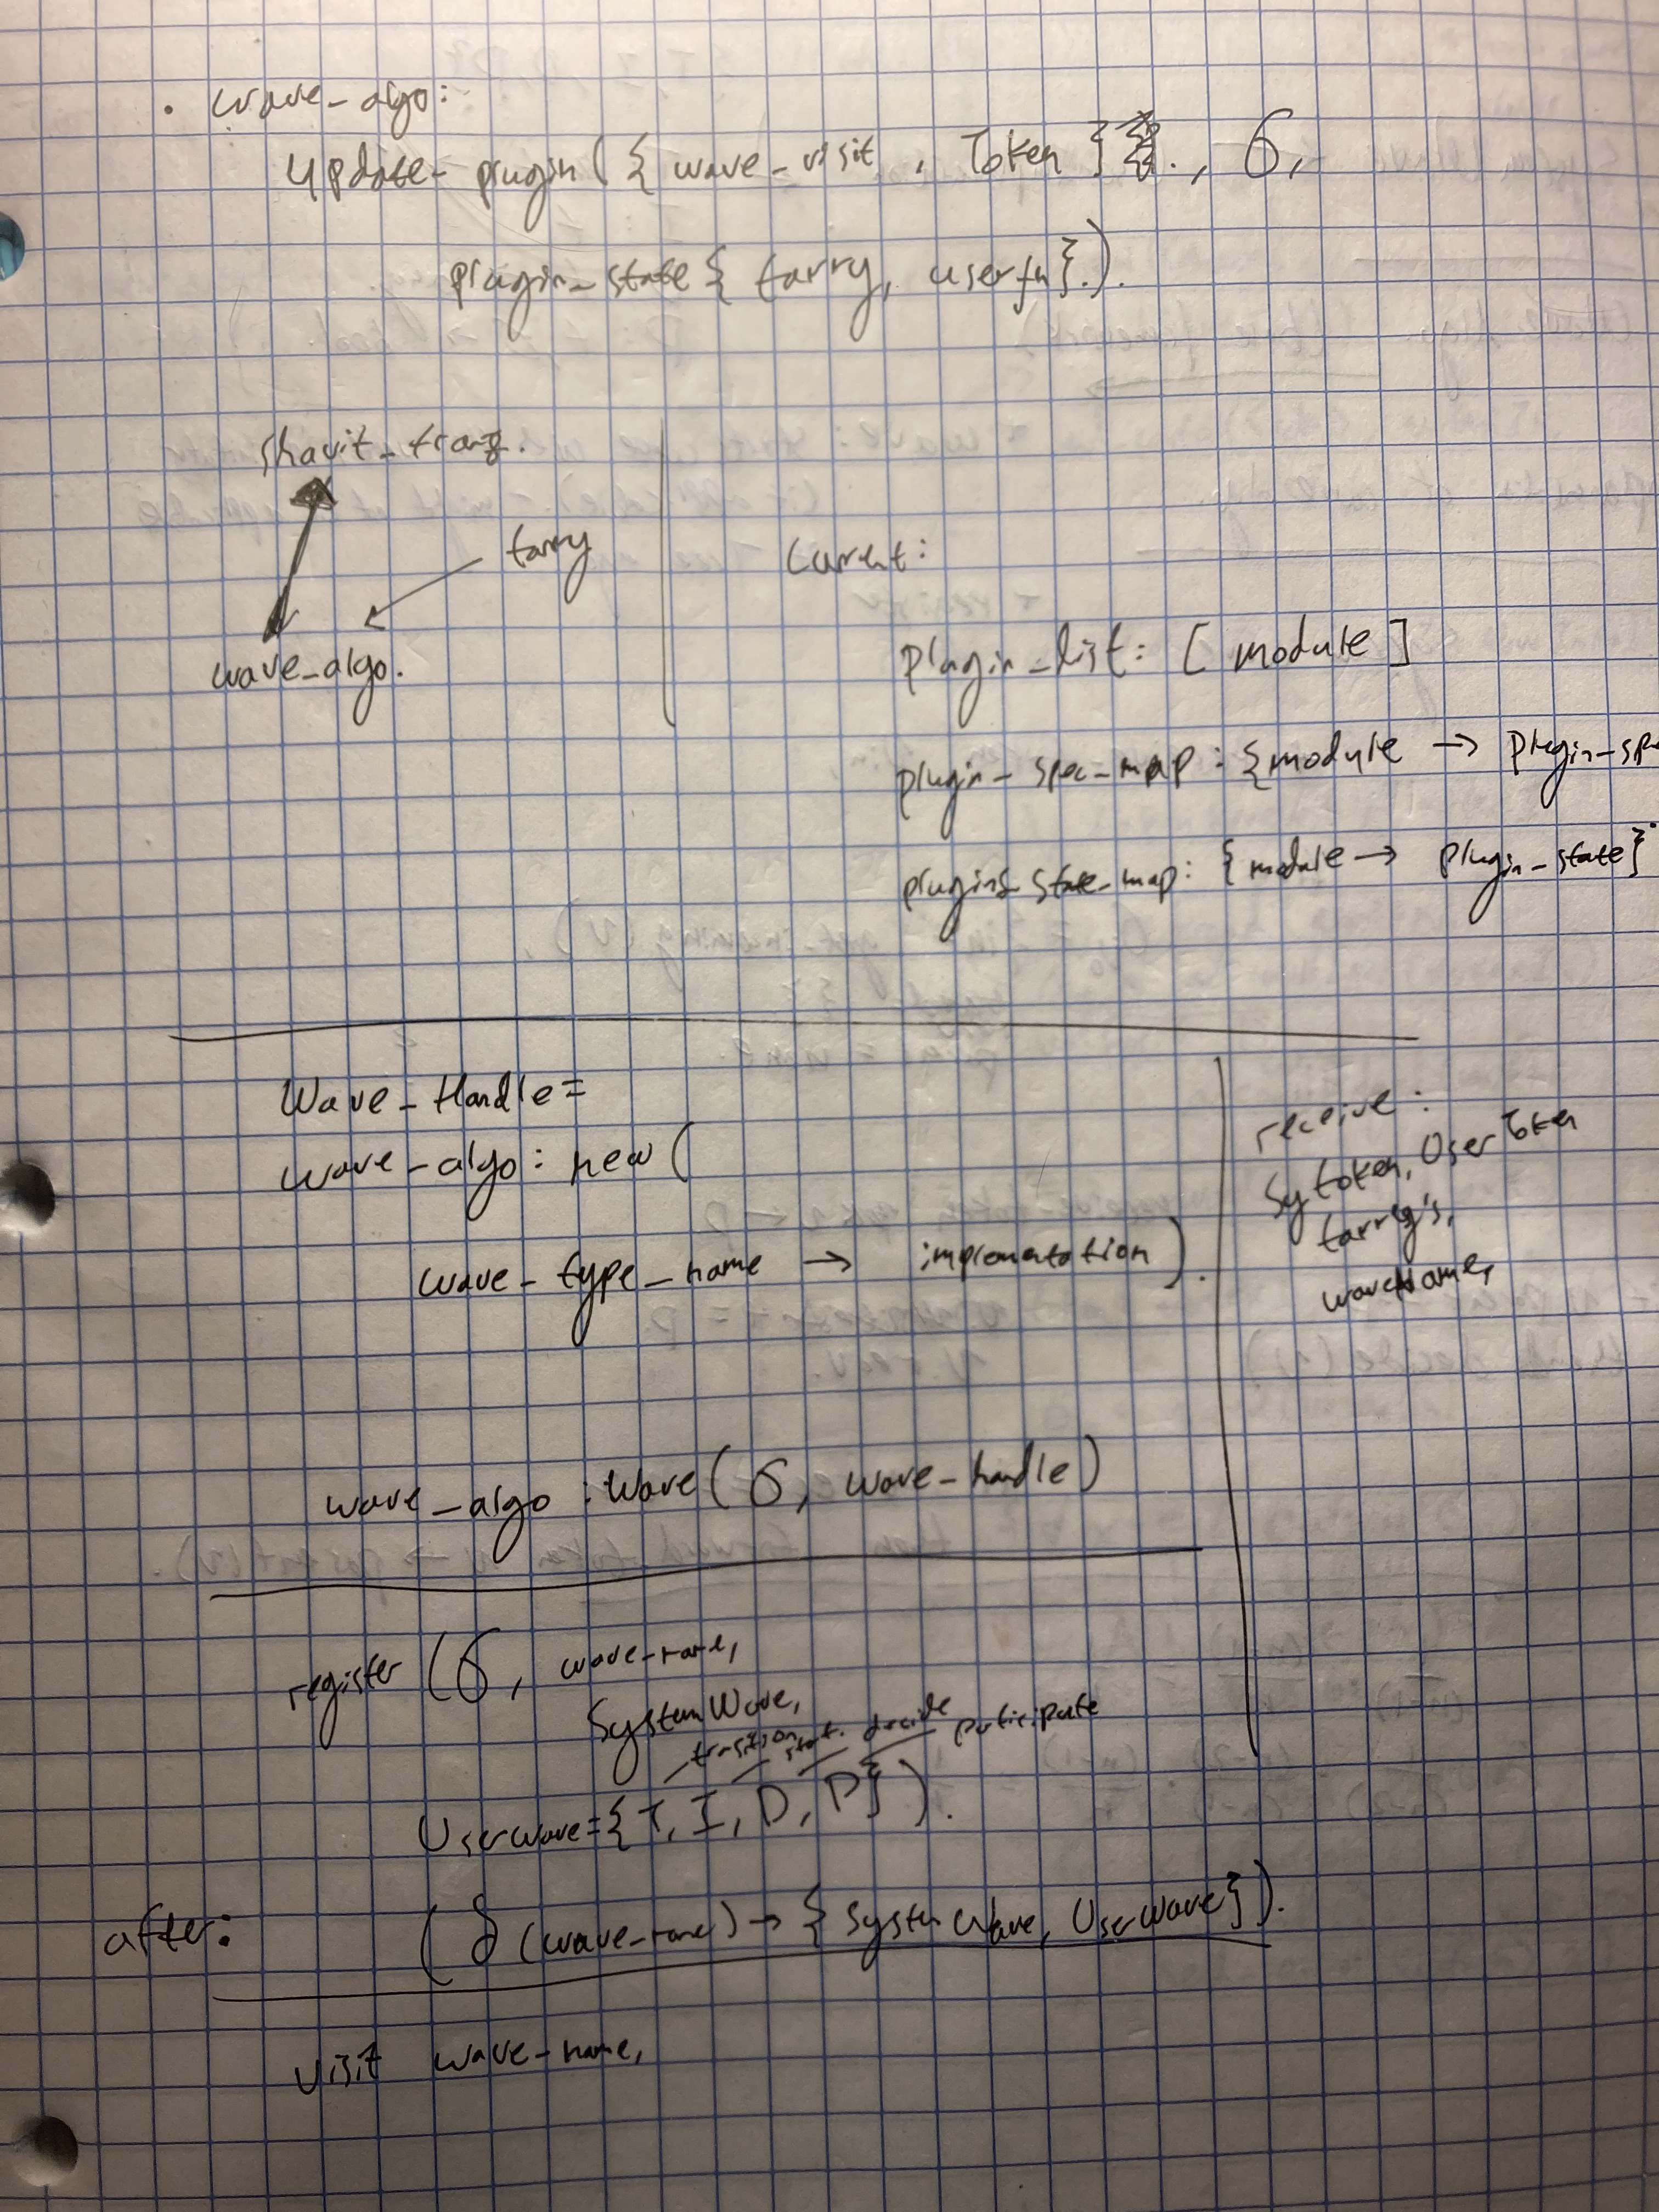 • wave_algo:
update_plugin({wave_visit, Token}., σ,
plugin_state{tarry, userfn}.).
shavit_franz.
tarry
wave_algo.
Current:
plugin_list: [module]
plugin_spec_map: {module → plugin_spe
plugins_state_map: {module → plugin_state}.
Wave_Handle=
wave_algo:new(
wave_type_name → implementation).
receive:
Sytoken, UserToken
tarry's,
waveName,
wave_algo:Wave(σ, wave_handle)
register(σ, wave_name,
SystemWave,
transition start. decide participate
UserWave={T, I, D, P}).
after: (δ(wave_name) → {SystemWave, UserWave}).
visit wave_name,